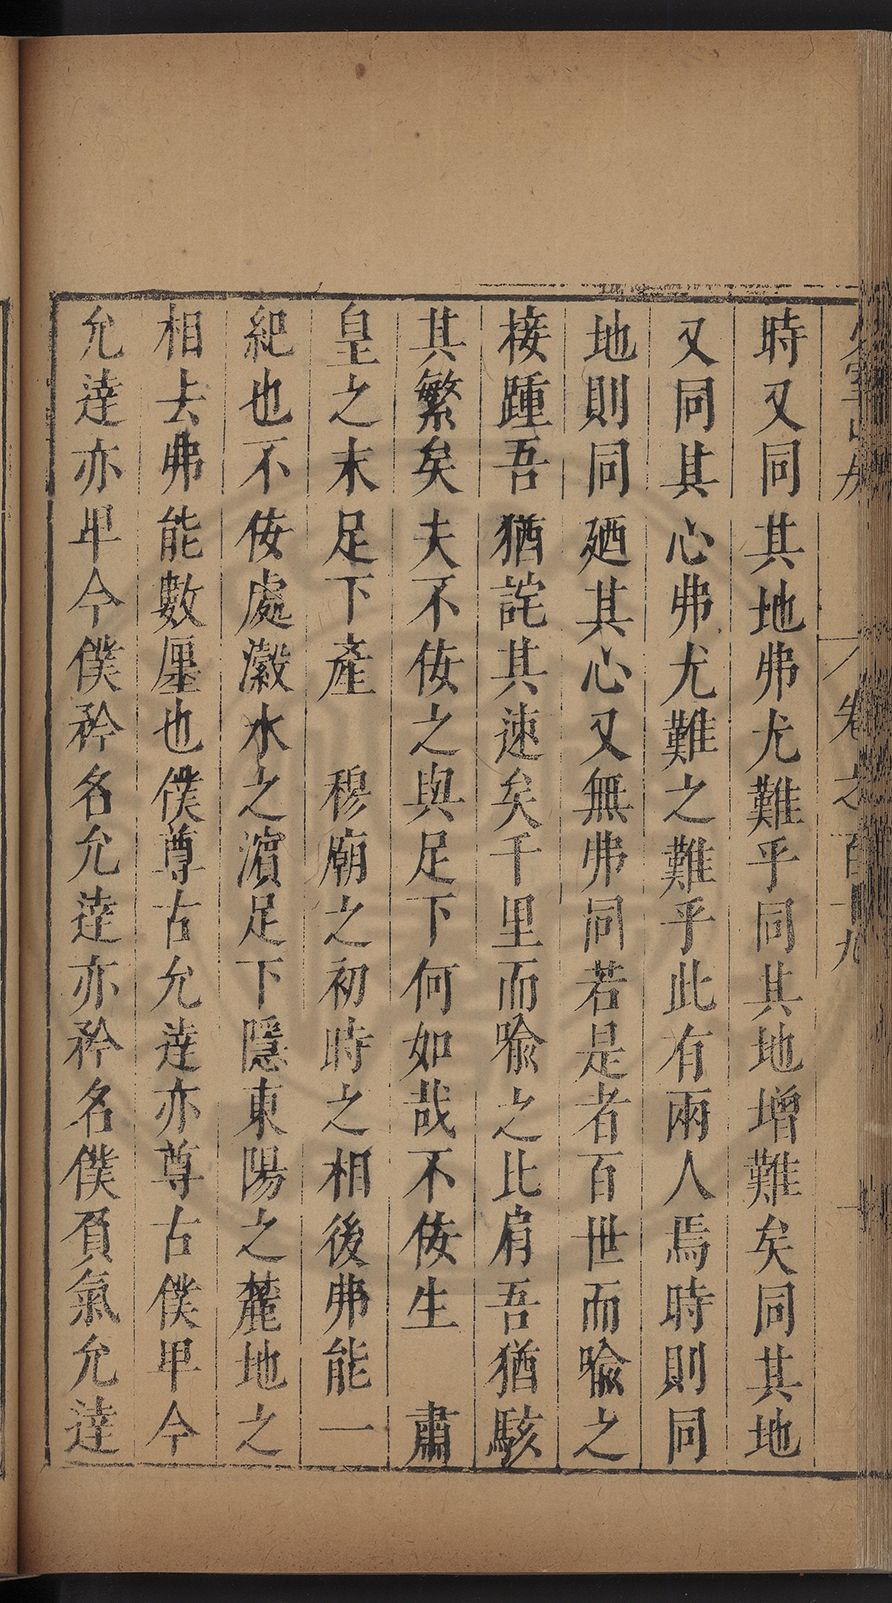 少室山房 卷之百十九
時又同其地弗尤難乎同其地增難矣同其地
又同其心弗尤難之難乎此有兩人焉時則同
地則同廼其心又無弗同若是者百世而喩之
接踵吾猶詫其速矣千里而喩之此肩吾猶駭
其繁矣夫不侫之與足下何如哉不侫生 肅
皇之末足下產 穆廟之初時之相後弗能一
紀也不侫處瀫水之濵足下隱東陽之麓地之
相去弗能數廛也僕尊古允逹亦尊古僕甲今
允逹亦甲今僕矜名允逹亦矜名僕負氣允逹